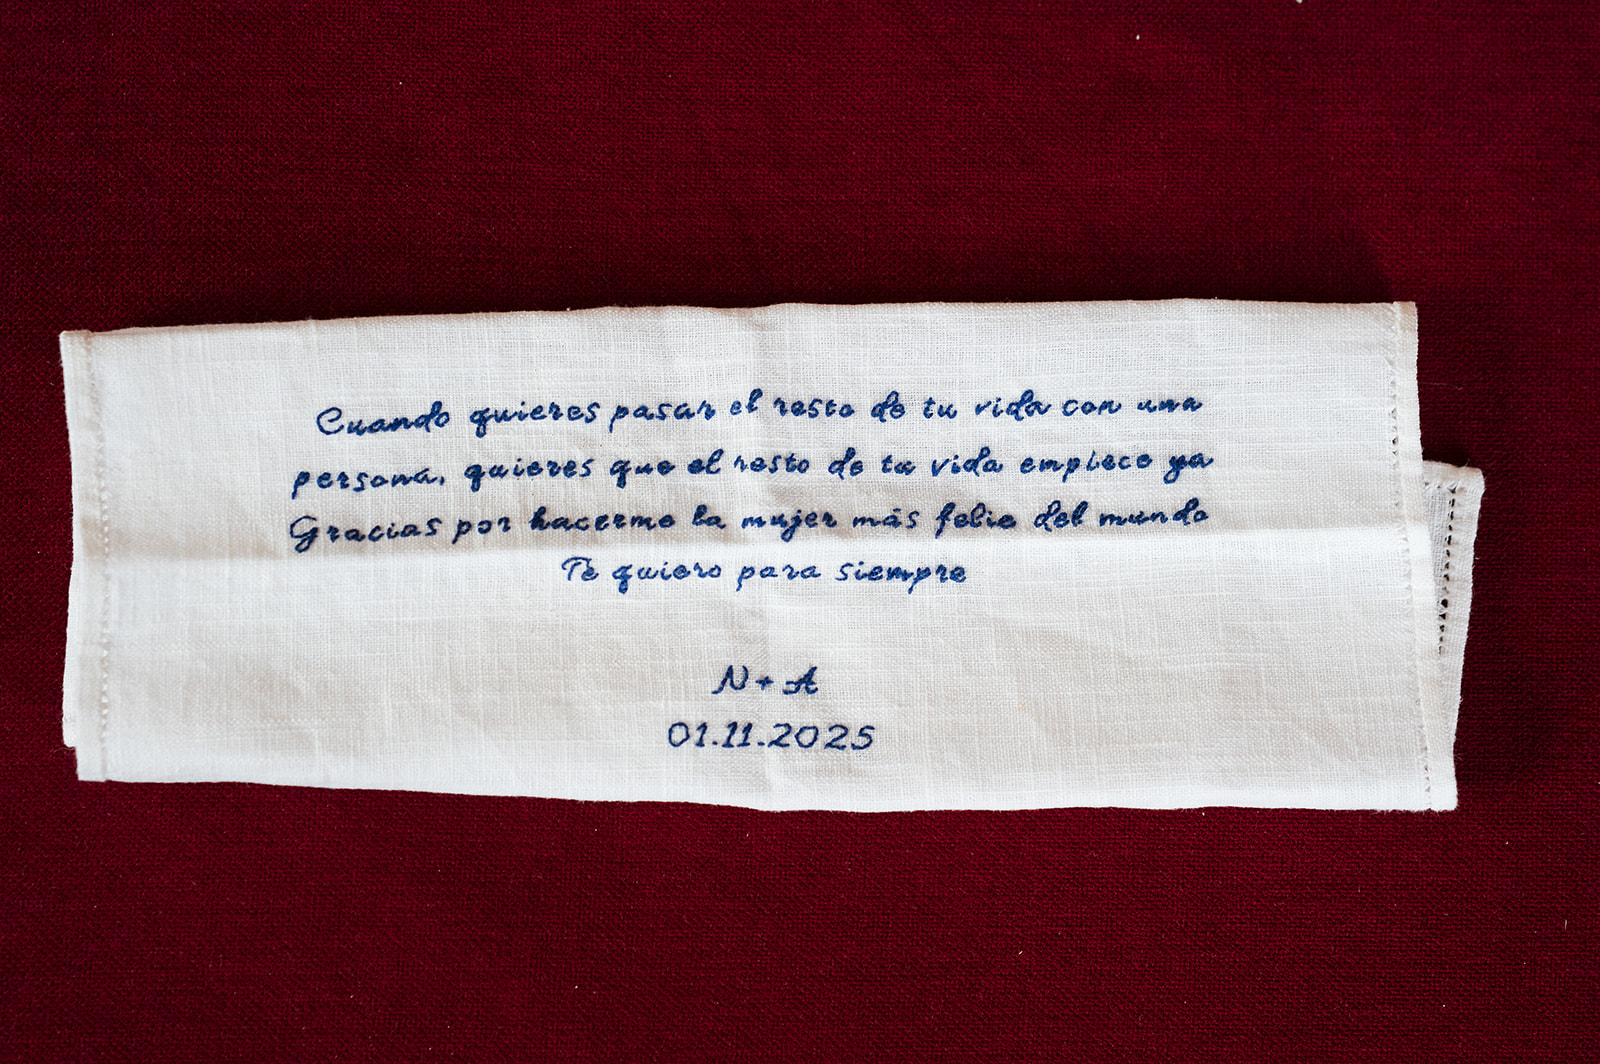 Cuando quieres pasar el resto de tu vida con una
persona, quieres que el resto de tu vida empiece ya
Gracias por hacerme la mujer más feliz del mundo
Te quiero para siempre
N + A
01.11.2025